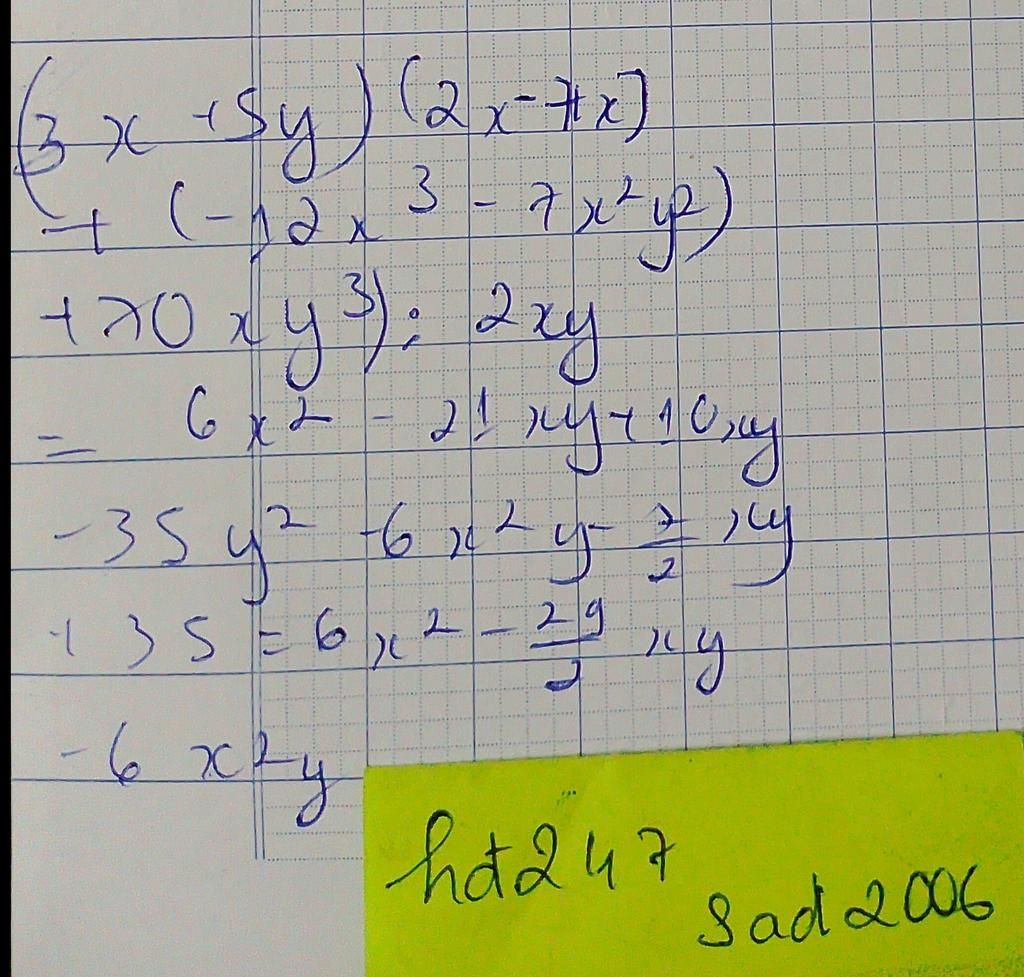 (3x +5y) (2x-7x)
+ (-12x³ - 7x²y²)
+70xy³) : 2xy
= 6x² - 21xy+10xy
-35y² -6x²y- 7/2 xy
+35 = 6x² - 29/2 xy
-6x²y
hdt247
sad2006